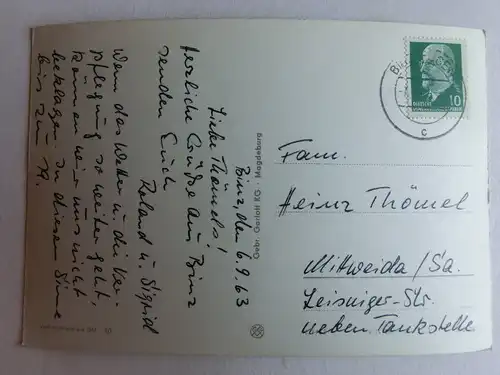 Binz, den 6.9.63
Liebe Thömels!
Herzliche Grüße aus Binz
senden Euch
Roland u. Sigrid
Wenn das Wetter u. die Ver-
pflegung so weiter geht,
können wir uns nicht
beklagen. In diesem Sinne
bis zum
Gebr. Garloff KG · Magdeburg
DEUTSCHE
10
c
Fam.
Heinz Thömel
Mittweida/Sa.
Leisniger-Str.
neben Tankstelle